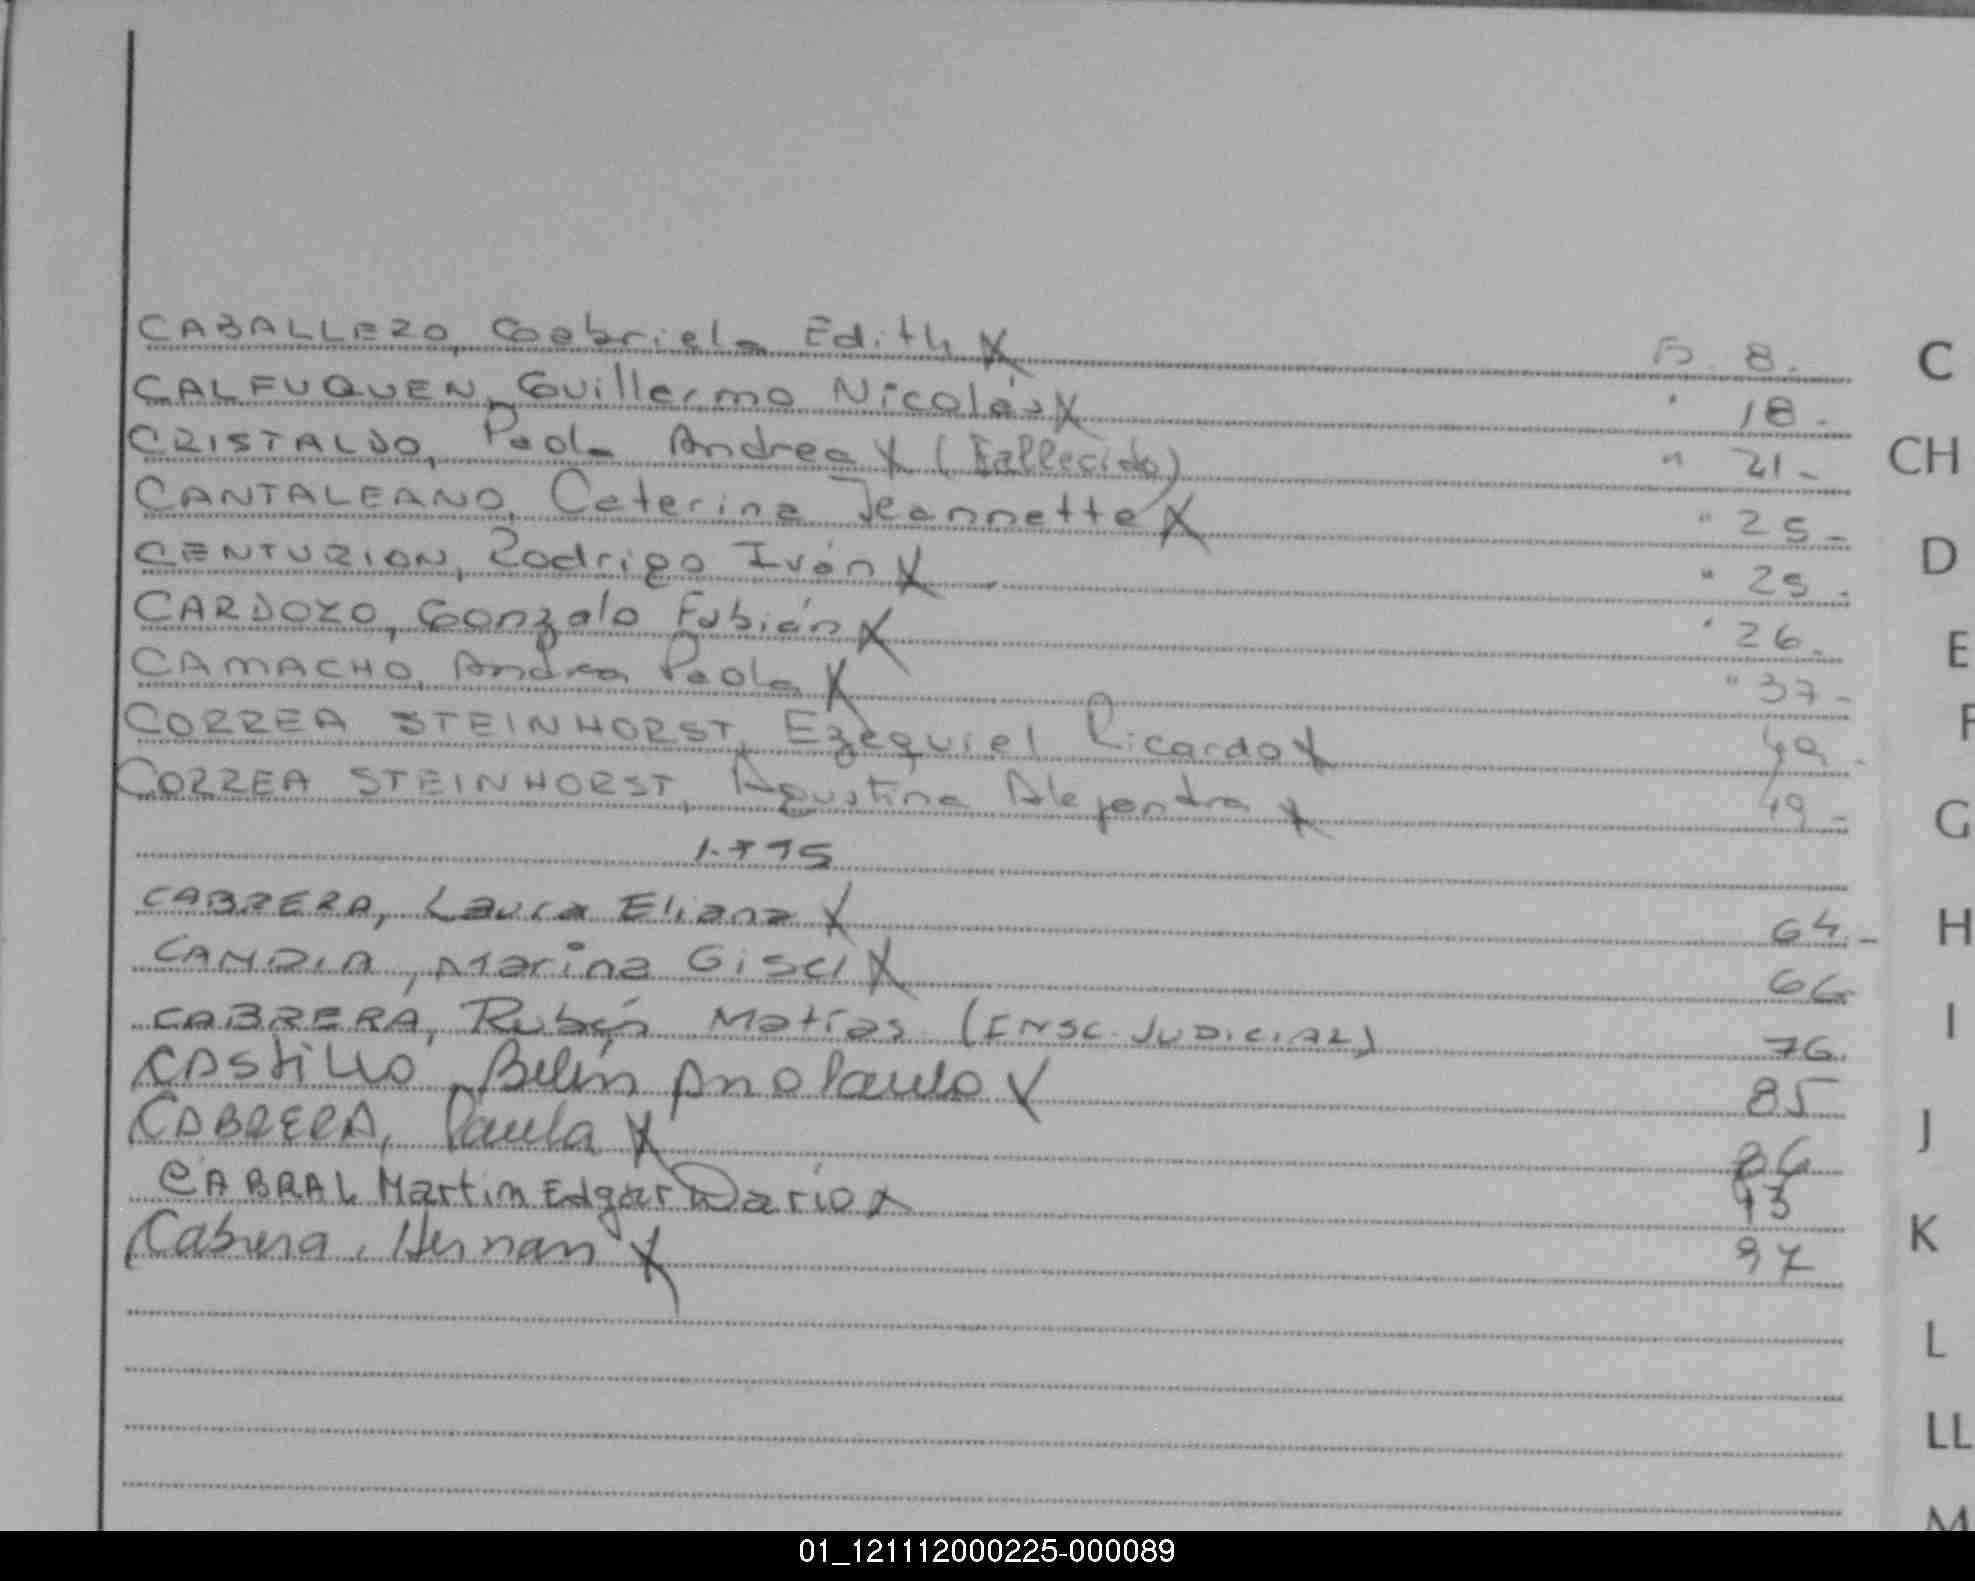 CABALLERO, Gabriela Edith X F. 8.
CALFUQUEN, Guillermo Nicolás X " 18.
CRISTALDO, Paola Andrea X (Fallecido) " 21-
CANTALEANO, Caterina Jeannette X " 25-
CENTURION, Rodrigo Iván X " 25.
CARDOZO, Gonzalo Fabián X " 26.
CAMACHO, Andrea Paola X " 37-
CORREA STEINHORST, Ezequiel Ricardo X 49.
CORREA STEINHORST, Agustina Alejandra X 49-
1.995
CABRERA, Laura Eliana X 64.-
CANDIA, Marina Gisel X 66
CABRERA, Rubén Matías (INSC. JUDICIAL) 76
CASTILLO, Belén Ana Paula X 85
CABRERA, Paula X 86
CABRAL Martin Edgar Dario X 93
Cabrera, Hernan X 97
C
CH
D
E
F
G
H
I
J
K
L
LL
M
01_121112000225-000089